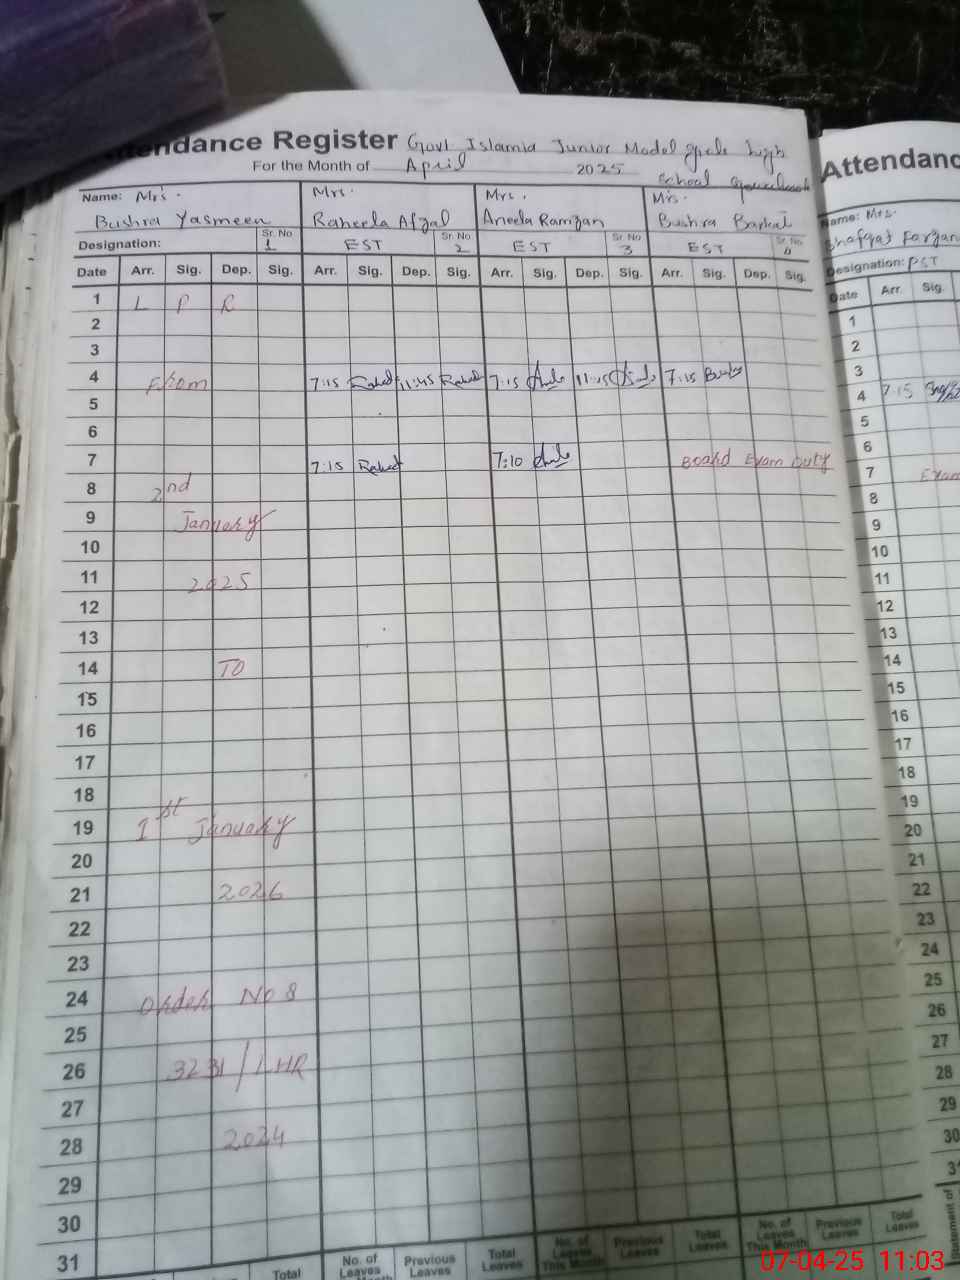 Attendance Register Govt Islamia Junior Model Girls High
For the Month of April 2025 School
Name: Mrs. Mrs. Mrs. Mrs.
Bushra Yasmeen Raheela Afzal Aneela Ramzan Bushra
Designation: Sr. No 1 EST Sr. No 2 EST Sr. No 3 EST Sr. No 4
Date Arr. Sig. Dep. Sig. Arr. Sig. Dep. Sig. Arr. Sig. Dep. Sig. Arr. Sig. Dep. Sig.
1 L P R
2
3
4 From 7:15 11:45 7:15 11:45 7:15
5
6
7 7:15 7:10 Board Exam Duty
8 2nd
9 January
10
11 2025
12
13
14 TO
15
16
17
18
19 1st January
20
21 2026
22
23
24 Order No 8
25
26 3231/LHR
27
28 2024
29
30
31
Total No. of Leaves Month Previous Leaves Total Leaves No. of Leaves This Month Previous Leaves Total Leaves No. of Leaves This Month Previous Leaves Total Leaves
Attendanc
Name: Mrs.
Shafqat Farzan
Designation: PST
Date Arr. Sig.
1
2
3
4 7:15
5
6
7 Exam
8
9
10
11
12
13
14
15
16
17
18
19
20
21
22
23
24
25
26
27
28
29
30
31
Statement of
07-04-25 11:03